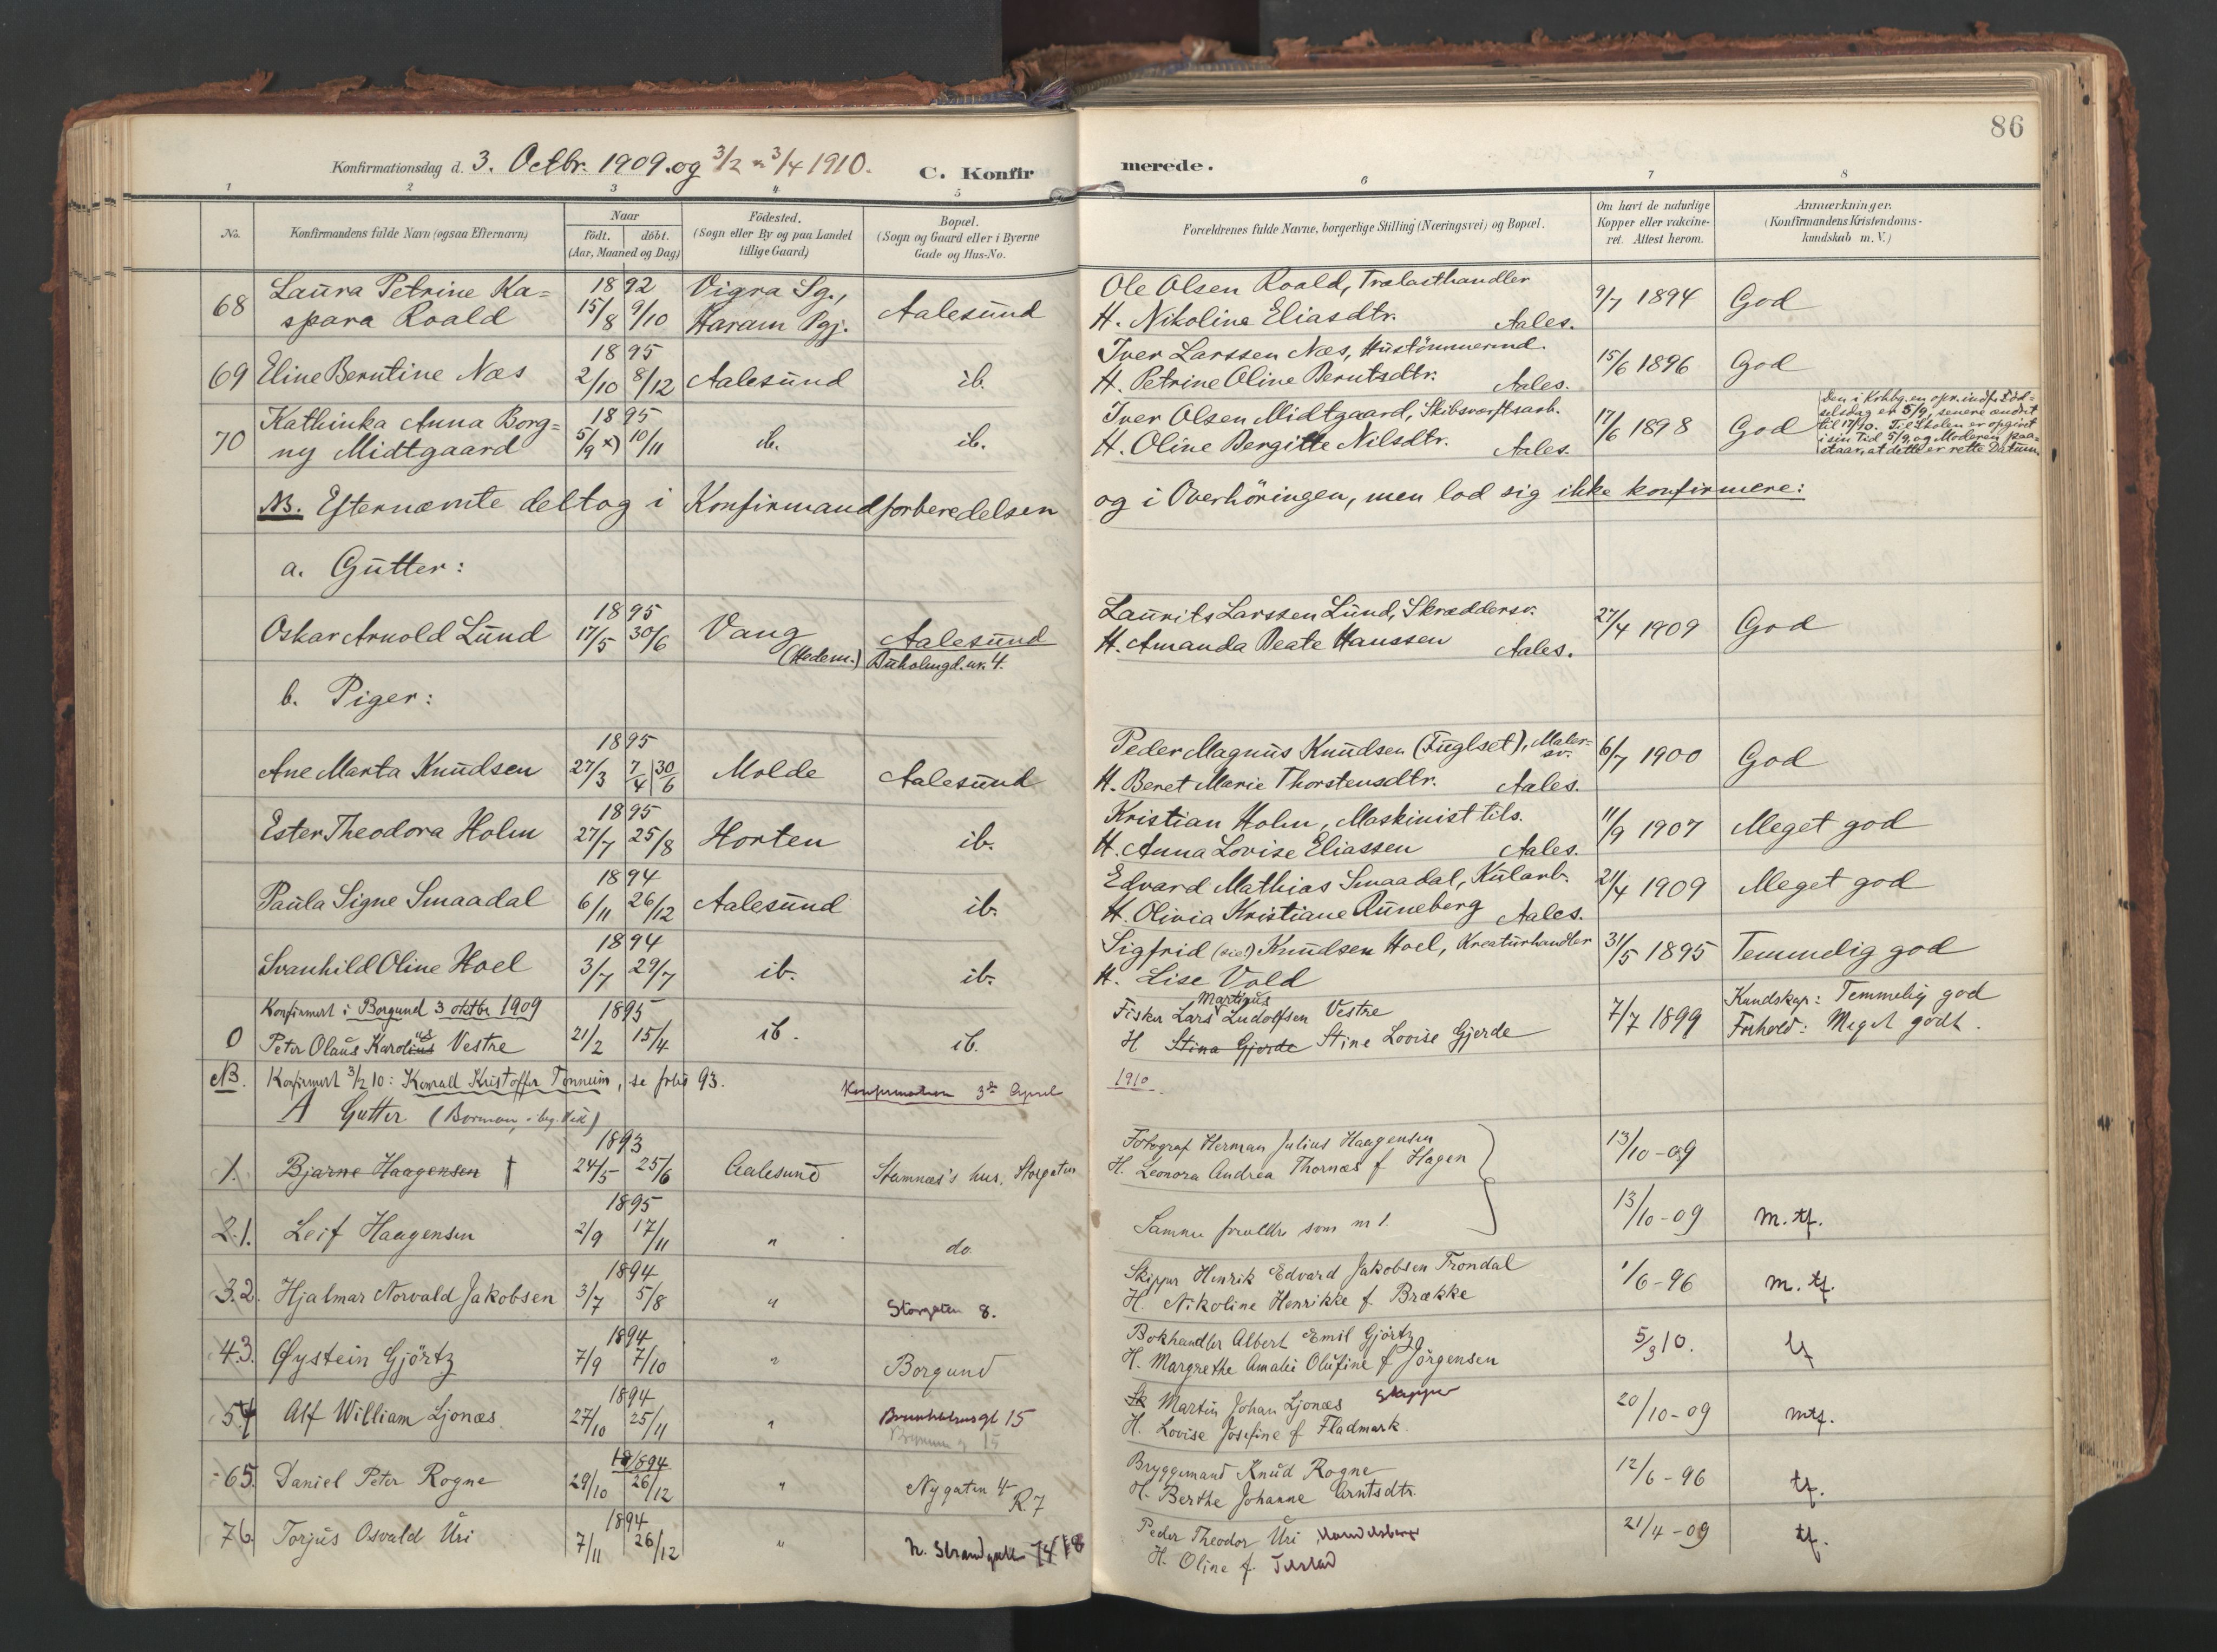 86
Konfirmationsdag d. 3. Octbr. 1909. og 3/2 3/4 1910.
C. Konfirmerede.
1 2 3 4 5 6 7 8
No. Konfirmandens fulde Navn (ogsaa Efternavn) Naar födt. döbt. (Aar, Maaned og Dag) Födested. (Sogn eller By og paa Landet tillige Gaard) Bopæl. (Sogn og Gaard eller i Byerne Gade og Hus-No. Forældrenes fulde Navne, borgerlige Stilling (Næringsvei) og Bopæl. Om havt de naturlige Kopper eller vakcineret. Attest herom. Anmærkninger. (Konfirmandens Kristendomskundskab m. V.)
68 Laura Petrine Ka= 1892 Vigra Sg., Aalesund Ole Olsen Roald, Trælasthandler 9/7 1894 God
spara Roald 15/8 9/10 Haram Pgj. H. Nikoline Eliasdtr. Aales.
69 Eline Berntine Næs 1895 2/10 8/12 Aalesund ib. Iver Larssen Næs, Hustömmermd. 15/6 1896 God
H. Petrine Oline Berntsdtr. Aales.
70 Kathinka Anna Borg= 1895 ib. ib. Iver Olsen Midtgaard, Skibsværftsarb. 17/6 1898 God
ny Midtgaard 5/9 x) 10/11 H. Oline Bergitte Nilsdtr. Aales.
Den i Krkbg. en opr. indf. Föd=
selsdag er 5/9, senere ændret
til 17/10. Til Skolen er opgivet
i sin Tid 5/9, og Moderen paa=
staar, at dette er rette Datum.
NB. Efternævnte deltog i Konfirmandforberedelsen og i Overhöringen, men lod sig ikke konfirmere:
a. Gutter:
Oskar Arnold Lund 1895 17/5 30/6 Vang (Hedem.) Aalesund Buholmgd. nr. 4. Laurits Larssen Lund, Skræddersv. 27/4 1909 God
H. Amanda Beate Hanssen Aales.
b. Piger:
Ane Marta Knudsen 1895 27/3 7/4 30/6 Molde Aalesund Peder Magnus Knudsen (Fuglset), Maler=sv. 6/7 1900 God
H. Beret Marie Thorstensdtr. Aales.
Ester Theodora Holm 1895 27/7 25/8 Horten ib. Kristian Holm, Maskinist tils. 11/9 1907 Meget god
H. Anna Lovise Eliassen Aales.
Paula Signe Smaadal 1894 6/11 26/12 Aalesund ib. Edvard Mathias Smaadal, Kularb. 21/4 1909 Meget god
H. Olivia Kristiane Runeberg Aales.
Svanhild Oline Hoel 1894 3/7 29/7 ib. ib. Sigfrid (sic!) Knudsen Hoel, Kreaturhandler 31/5 1895 Temmelig god
H. Lise Vold
Konfirmert i Borgund 3 oktbr 1909 1895 Fisker Lars Martinus Ludolfsen Vestre 7/7 1899 Kundskap: Temmelig god
0 Peter Olaus Karolius Vestre 21/2 15/4 ib. ib. H Stina Gjerde Stine Lovise Gjerde Forhold: Meget godt.
NB. Konfirmert 3/2 10: Konrall Kristoffer Tenneim, se folio 93. Konfirmation 3de April 1910.
A Gutter
1. Bjarne Haagensen † 1893 24/5 25/6 Aalesund Stamnæs's hus, Storgaten Fotograf Herman Julius Haagensen 13/10-09
H. Leonora Andrea Thornæs f Hagen
2. 1. Leif Haagensen 1895 2/9 17/11 " do. Samme forældre som nr 1. 13/10-09 m. tf.
3. 2. Hjalmar Norvald Jakobsen 1894 3/7 5/8 " Storgaten 8. Skipper Henrik Edvard Jakobsen Trondal 1/6-96 m. tf.
H. Nikoline Henrikke f. Brække
4. 3. Øystein Gjörtz 1894 7/9 7/10 " Borgund Bokhandler Albert Emil Gjörtz 5/3 10. tf
H. Margrethe Amalie Olufine f Jörgensen
5 4 Alf William Ljonæs 1894 27/10 25/11 " 15 Martin Johan Ljonæs Skipper 20/10-09 mtf.
H. Lovise Josefine f Fladmark.
6 5. Daniel Peter Rogne 1894 29/10 26/12 " Nygaten 4 R. 7 Bryggemand Knud Rogne 12/6-96 tf.
H. Berthe Johanne Arntsdtr.
7 6. Torjus Osvald Uri 1894 7/11 26/12 " N. Strandgate 18 Peder Theodor Uri 21/4-09 tf.
H. Oline f.